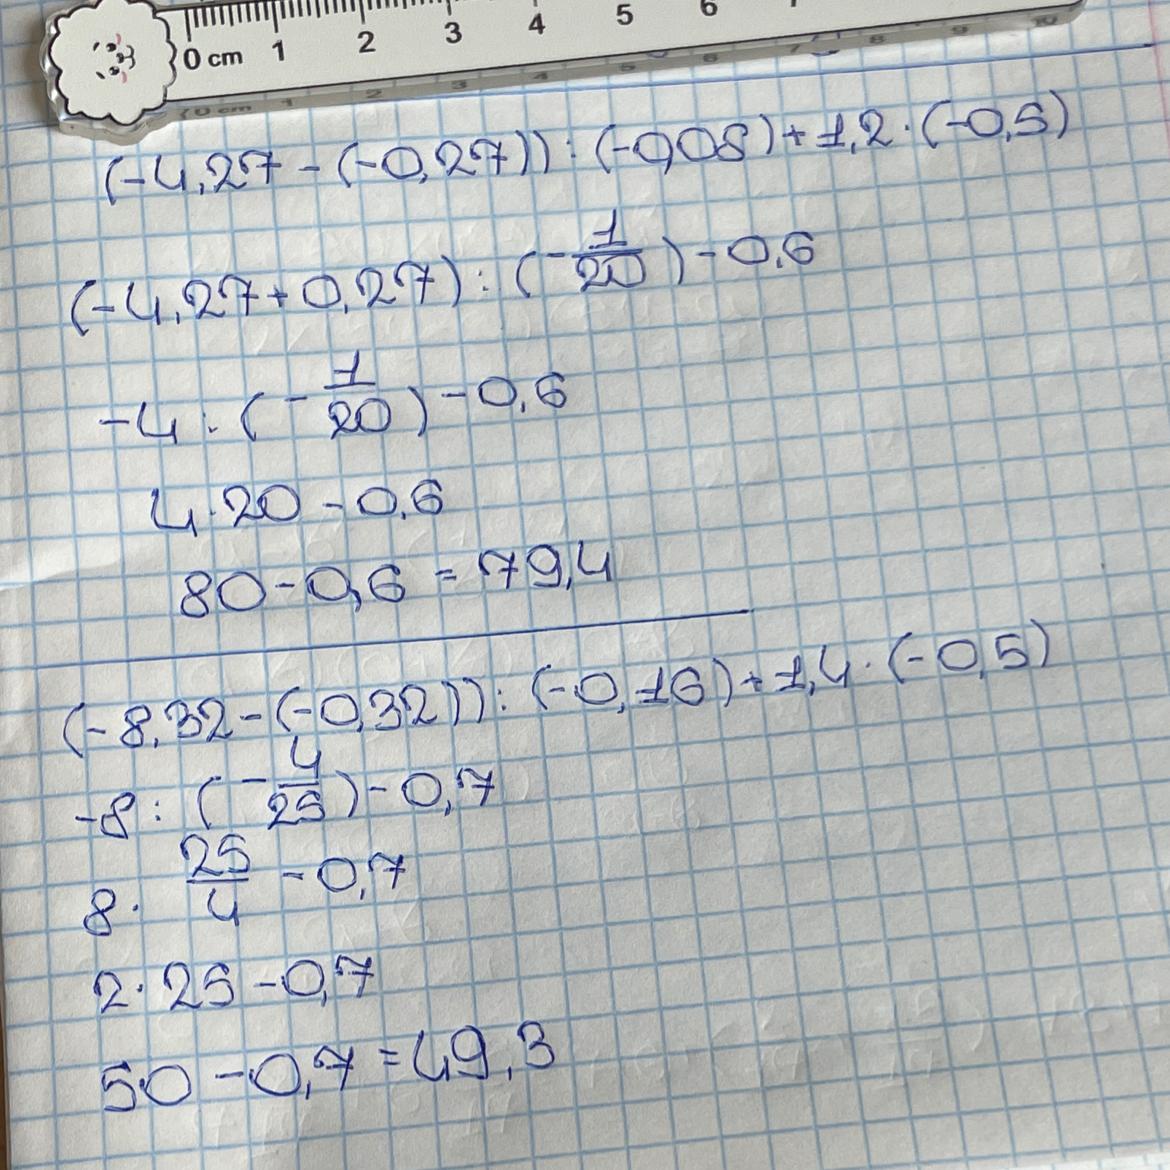 0 cm 1 2 3 4 5 6 7
(-4,27 - (-0,27)) : (-0,08) + 1,2 · (-0,5)
(-4,27 + 0,27) : (-\frac{1}{20}) - 0,6
-4 : (-\frac{1}{20}) - 0,6
4 · 20 - 0,6
80 - 0,6 = 79,4
(-8,32 - (-0,32)) : (-0,16) + 1,4 · (-0,5)
-8 : (-\frac{4}{25}) - 0,7
8 · \frac{25}{4} - 0,7
2 · 25 - 0,7
50 - 0,7 = 49,3